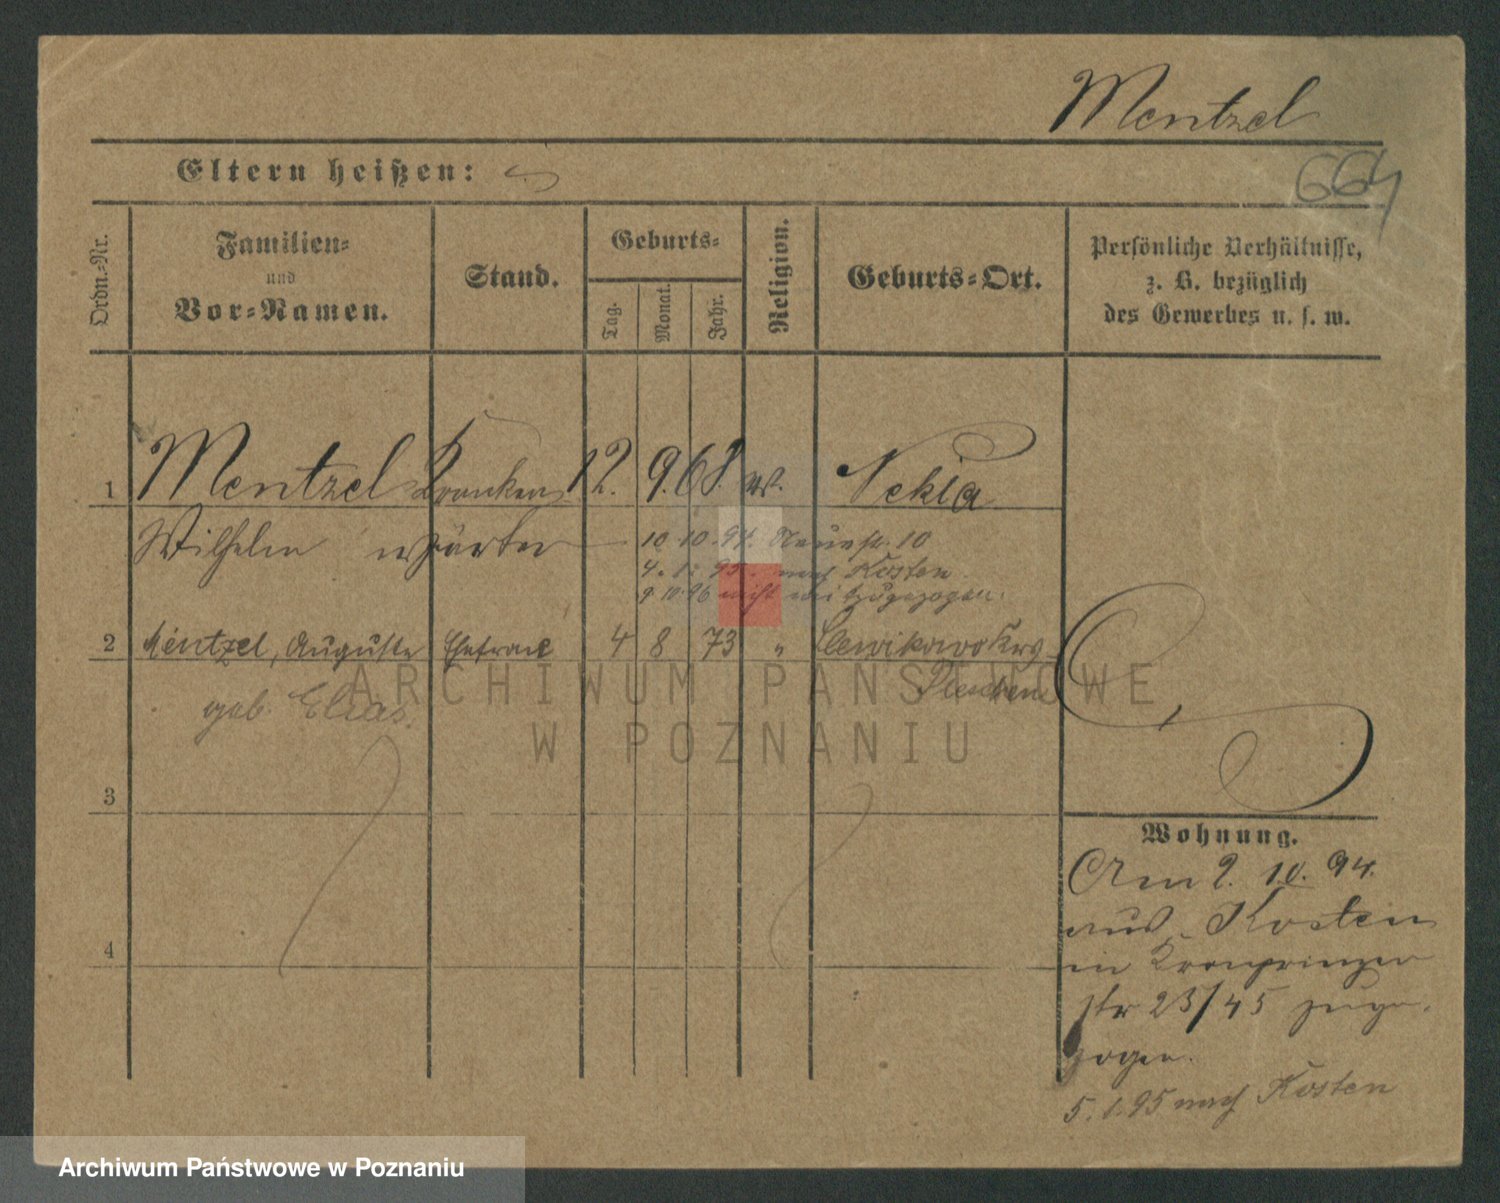 Mentzel
Eltern heißen:
664
Ordn.-Nr.
Familien-
und
Vor-Namen.
Stand.
Geburts-
Tag.
Monat.
Jahr.
Religion.
Geburts-Ort.
Persönliche Verhältnisse,
z. B. bezüglich
des Gewerbes u. s. w.
1 Mentzel Kranken 12. 9. 68. ev. Nekla
Wilhelm wärter
10. 10. 94. Neuestr. 10
4. 1. 95. nach Kosten
9. 10. 96 nicht mitzugezogen.
2 Mentzel, Auguste Ehefrau 4 8 73 "
geb. Elias. Pleschen
3
4
Wohnung.
Am 2. 10. 94.
aus Kosten
in Kronprinzen
str 23/45 zuge-
zogen.
5. 1. 95 nach Kosten
ARCHIWUM PAŃSTWOWE
W POZNANIU
Archiwum Państwowe w Poznaniu